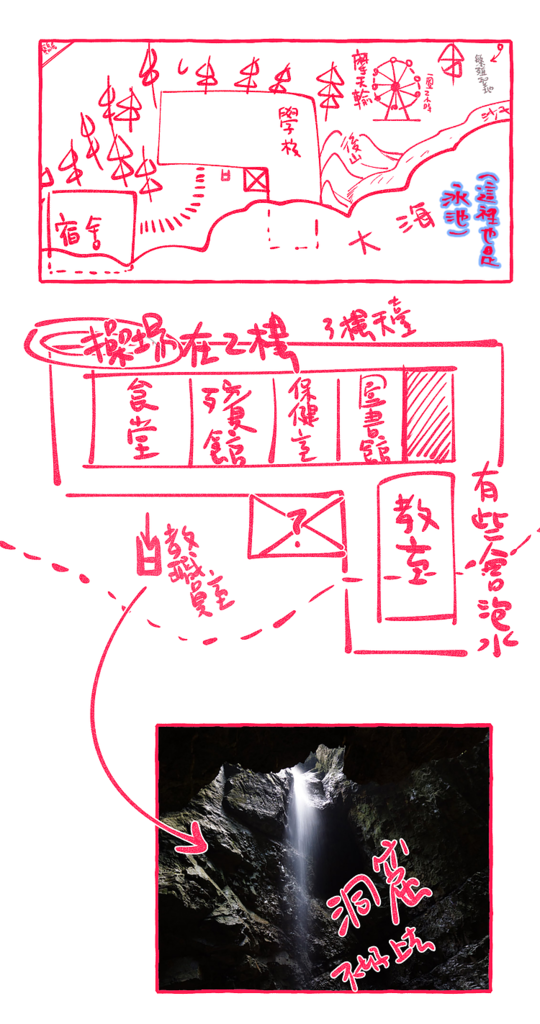 學校
摩天輪
後山
沙灘
宿舍
大海
(這裡也是
泳池)
操場在2樓
3樓天臺
食堂
殯儀館
保健室
圖書館
?
教室
教職員室
有些會泡水
洞窟
不好上去